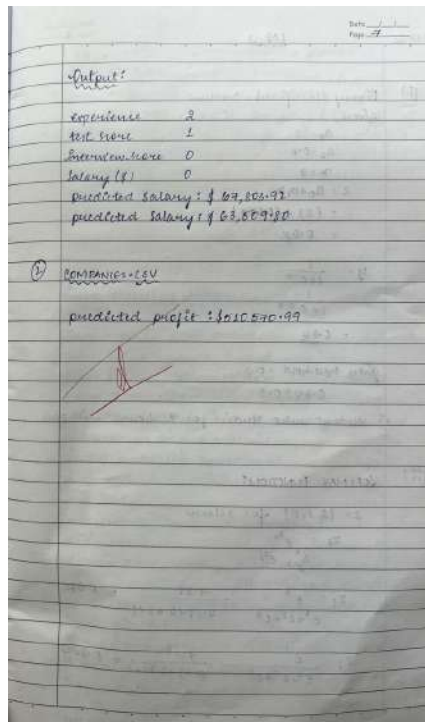 Date / /
Page 7
Output:
experience 2
test score 1
Interview score 0
Salary ($) 0
predicted salary: $
predicted salary: $ 63,
2) COMPANIES.CSV
predicted profit: $510570.99